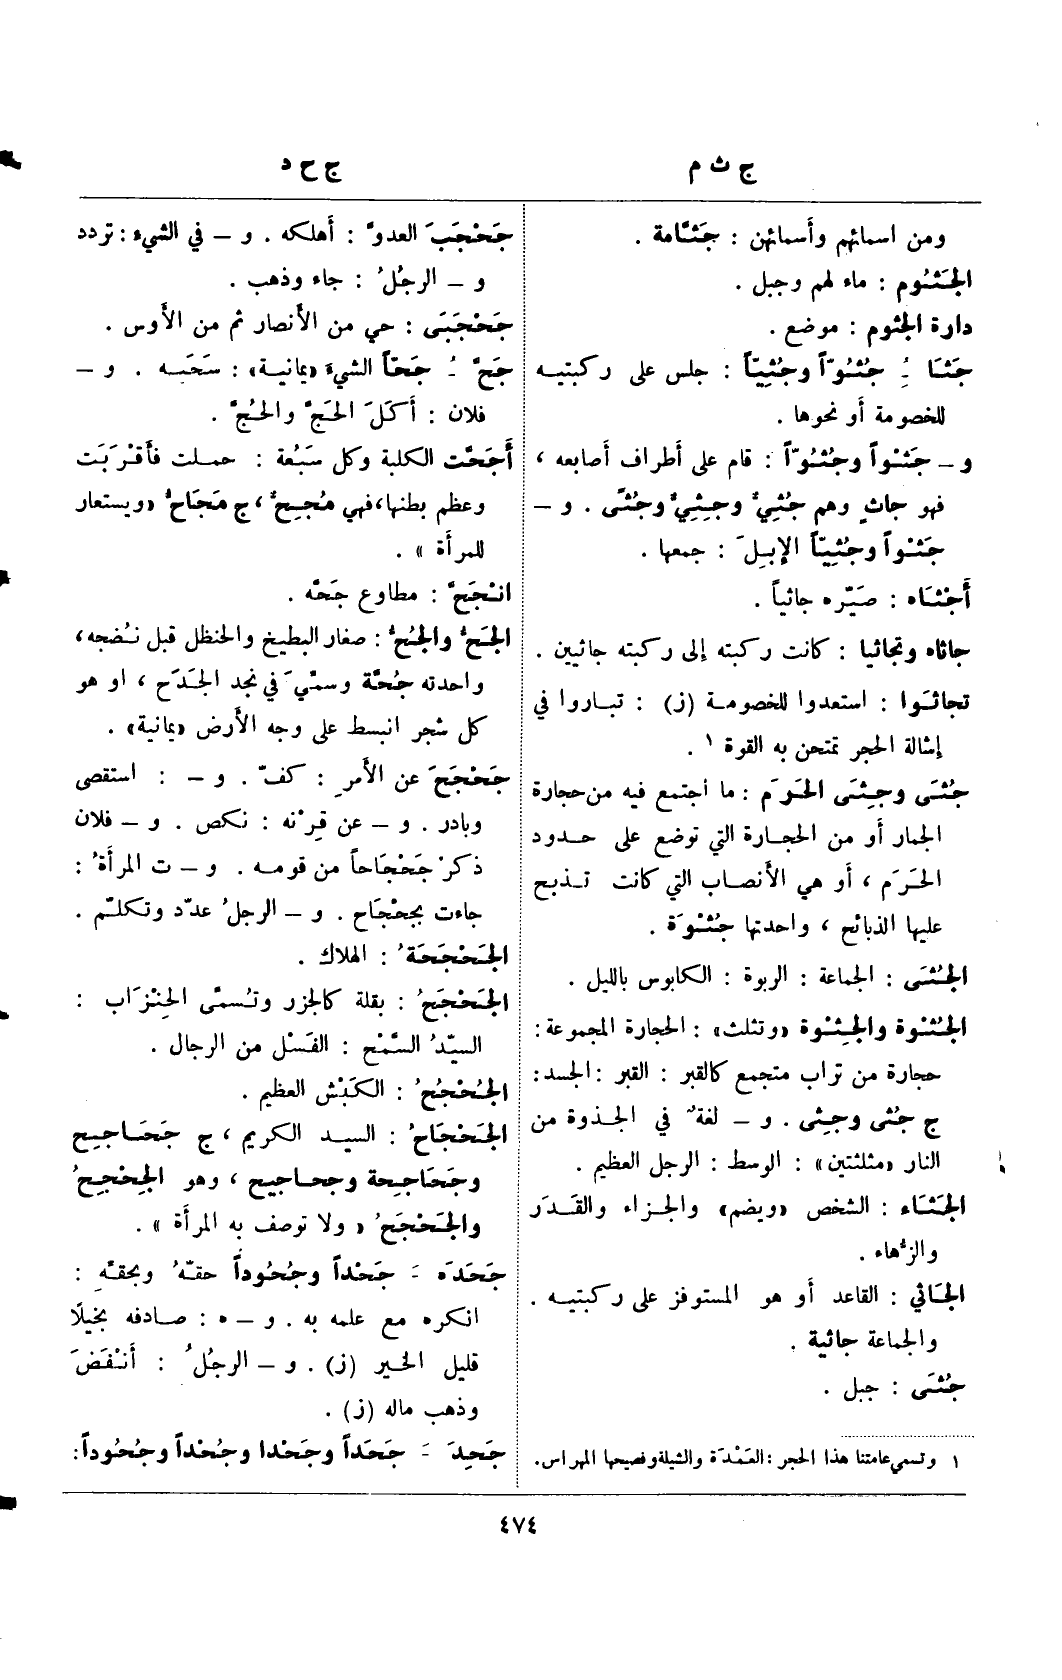 ج ث م
ج ح د
ومن اسمائهم وأسمائهن : جَثّامة .
الجَثُوم : ماء لهم وجبل .
دارة الجثوم : موضع .
جَثَا ـُِ جُثُوّاً وجُثِيّاً : جلس على ركبتيه
للخصومة أو نحوها .
و ــ جَثْواً وجُثُوّاً : قام على أطراف أصابعه ،
فهو جاثٍ وهم جُثِيٌّ وجِثِيٌّ وجُثًى . و ــ
جَثْواً وجُثِيّاً الإبِلَ : جمعها .
أَجْثَاه : صَيَّره جاثياً .
جاثاه وتجاثيا : كانت ركبته إلى ركبته جاثيين .
تجاثَوا : استعدوا للخصومة (ز) : تباروا في
إشالة الحجر تمتحن به القوة ١ .
جُثَى وجِثَى الحَرَم : ما اجتمع فيه من حجارة
الجمار أو من الحجارة التي توضع على حدود
الحَرَم ، أو هي الأنصاب التي كانت تذبح
عليها الذبائح ، واحدتها جُثْوَة .
الجُثَى : الجماعة : الربوة : الكابوس بالليل .
الجُثْوة والجِثْوة «وتثلث» : الحجارة المجموعة :
حجارة من تراب متجمع كالقبر : القبر : الجسد :
ج جُثى وجِثى . و ــ لغةٌ في الجذوة من
النار «مثلثتين» : الوسط : الرجل العظيم .
الجَثَاء : الشخص «ويضم» والجزاء والقَدَر
والزُّهاء .
الجَاثي : القاعد أو هو المستوفز على ركبتيه .
والجماعة جاثية .
جُثَى : جبل .
١ وتسمي عامتنا هذا الحجر : العَمْدَة والشيلة وفصيحها المهراس .
جَحْجَبَ العدوَّ : أهلكه . و ــ في الشيء : تردد
و ــ الرجُلُ : جاء وذهب .
جَحْجَبَى : حي من الأنصار ثم من الأوس .
جَحَّ ـُ جَحّاً الشيءَ «يمانية» : سَحَبَه . و ــ
فلان : أكَلَ الحَجَّ والحُجَّ .
أَجَحَّت الكلبة وكل سَبُعة : حملت فأقْرَبَت
وعظم بطنها، فهي مُجِحٌّ ، ج مَجَاحُّ «ويستعار
للمرأة » .
انْجَحَّ : مطاوع جَحّه .
الجَحُّ والجُحُّ : صغار البطيخ والحنظل قبل نُضجه ،
واحدته جُحَّة وسمِّيَ في نجد الجَدَح ، او هو
كل شجر انبسط على وجه الأرض «يمانية» .
جَحْجَحَ عن الأمرِ : كفّ . و ــ : استقصى
وبادر . و ــ عن قِرْنه : نكص . و ــ فلان
ذكرْ جَحْجَاحاً من قومه . و ــ ت المرأةُ :
جاءت بجحْجَاح . و ــ الرجلُ عدّد وتكلّم .
الجَحْجَحَةُ : الهلاك .
الجَحْجَحُ : بقلة كالجزر وتُسمّى الحِنْزَاب :
السيّدُ السَّمْح : الفَسْل من الرجال .
الجُحْجُحُ : الكَبْش العظيم .
الجَحْجَاحُ : السيد الكريم ، ج جَحَاجِح
وجَحَاجِحة وجحاجيح ، وهو الجِحْجِحُ
والجَحْجَحُ « ولا توصف به المرأة » .
جَحَدَه ـَ جَحْداً وجُحُوداً حقّهُ وبحقّهِ :
انكره مع علمه به . و ــ ه : صادفه بخيلًا
قليل الخير (ز) . و ــ الرجُلُ : أنْفَضَ
وذهب ماله (ز) .
جَحِدَ ـَ جَحَداً وجَحْدا وجُحْداً وجُحُوداً :
٤٧٤